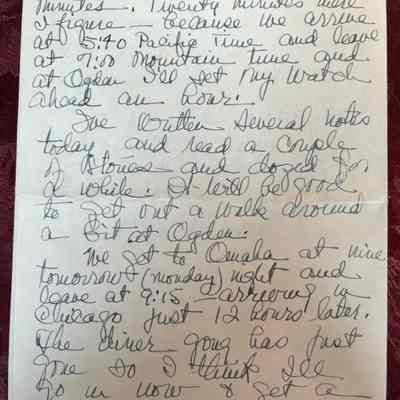 minutes. Twenty minutes more
I figure - because we arrive
at 5:40 Pacific Time and leave
at 7:00 Mountain time and
at Ogden I'll set my watch
ahead an hour.
I've written several notes
today and read a couple
of stories and dozed for
a while. It will be good
to get out & walk around
a bit at Ogden.
We get to Omaha at nine
tomorrow (Monday) night and
leave at 9:15 - arriving in
Chicago just 12 hours later.
The diner gong has just
gone so I think I'll
go in now & get a